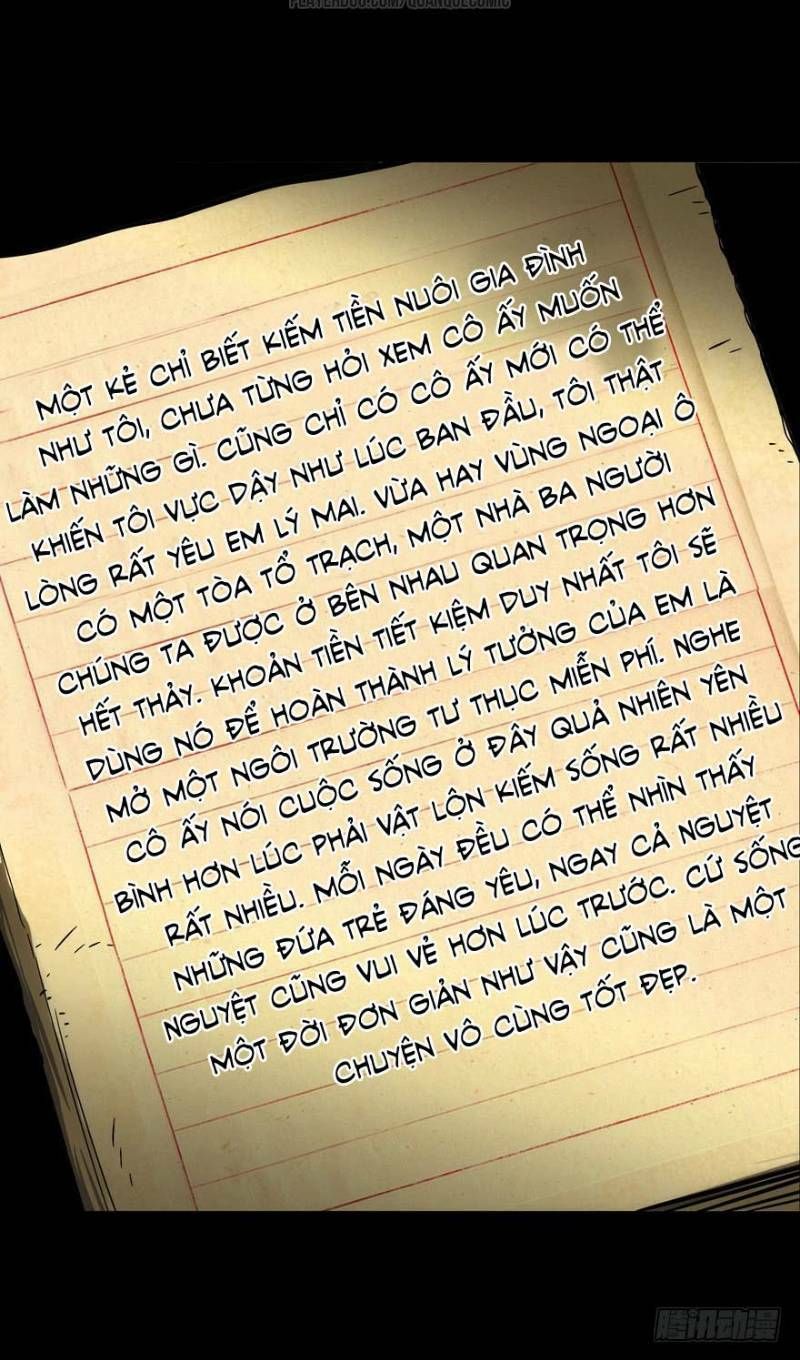 PLAYERDUO.COM/QUANQUECOMIC
MỘT KẺ CHỈ BIẾT KIẾM TIỀN NUÔI GIA ĐÌNH
NHƯ TÔI, CHƯA TỪNG HỎI XEM CÔ ẤY MUỐN
LÀM NHỮNG GÌ. CŨNG CHỈ CÓ CÔ ẤY MỚI CÓ THỂ
KHIẾN TÔI VỰC DẬY NHƯ LÚC BAN ĐẦU, TÔI THẬT
LÒNG RẤT YÊU EM LÝ MAI. VỪA HAY VÙNG NGOẠI Ô
CÓ MỘT TÒA TỔ TRẠCH, MỘT NHÀ BA NGƯỜI
CHÚNG TA ĐƯỢC Ở BÊN NHAU QUAN TRỌNG HƠN
HẾT THẢY. KHOẢN TIỀN TIẾT KIỆM DUY NHẤT TÔI SẼ
DÙNG NÓ ĐỂ HOÀN THÀNH LÝ TƯỞNG CỦA EM LÀ
MỞ MỘT NGÔI TRƯỜNG TƯ THỤC MIỄN PHÍ. NGHE
CÔ ẤY NÓI CUỘC SỐNG Ở ĐÂY QUẢ NHIÊN YÊN
BÌNH HƠN LÚC PHẢI VẬT LỘN KIẾM SỐNG RẤT NHIỀU
RẤT NHIỀU. MỖI NGÀY ĐỀU CÓ THỂ NHÌN THẤY
NHỮNG ĐỨA TRẺ ĐÁNG YÊU, NGAY CẢ NGUYỆT
NGUYỆT CŨNG VUI VẺ HƠN LÚC TRƯỚC. CỨ SỐNG
MỘT ĐỜI ĐƠN GIẢN NHƯ VẬY CŨNG LÀ MỘT
CHUYỆN VÔ CÙNG TỐT ĐẸP.
腾讯动漫